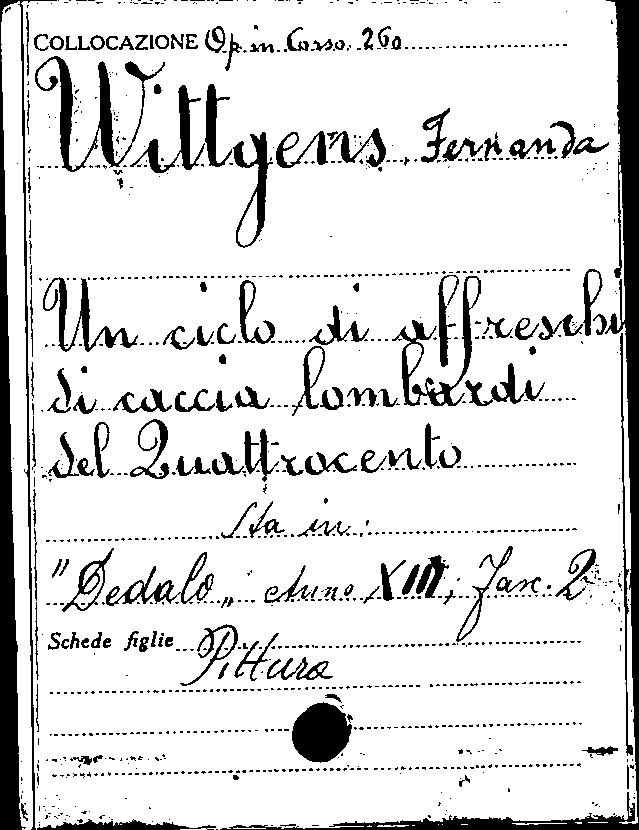 COLLOCAZIONE Op. in Corso. 260
Wittgens, Fernanda
Un ciclo di affreschi
di caccia lombardi
del Quattrocento
Sta in:
"Dedalo„ Anno XIII; Fasc. 2
Schede figlie Pittura